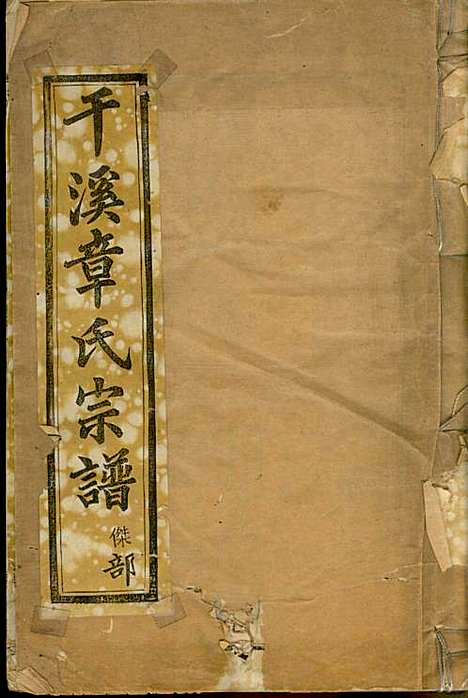 干溪章氏宗譜
傑部